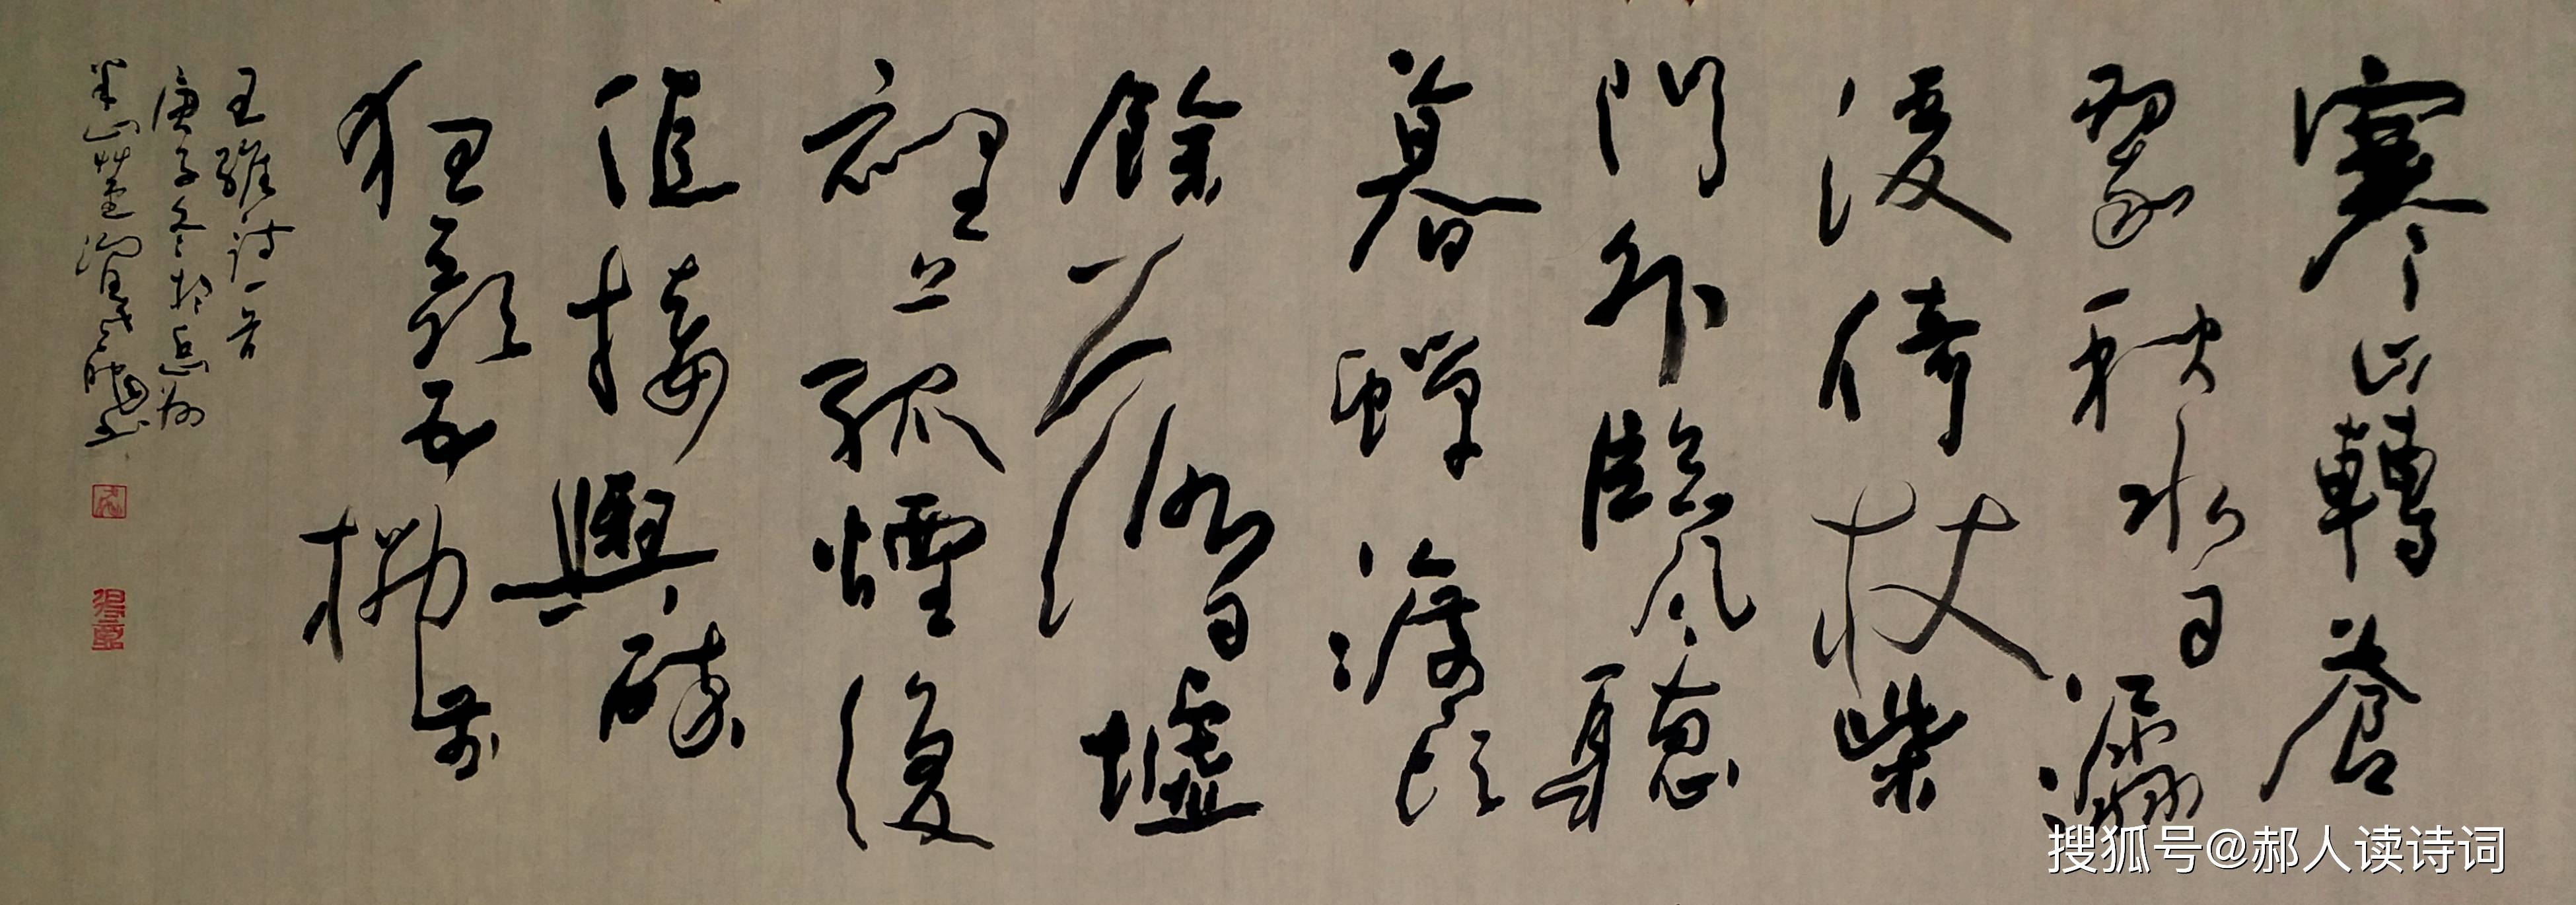 寒山轉蒼
翠秋水日潺
湲倚杖柴
門外臨風聽
暮蟬渡頭
餘落日墟
裡上孤煙復
值接輿醉
狂歌五柳前
王維詩一首
庚子冬於
半山
搜狐号@郝人读诗词